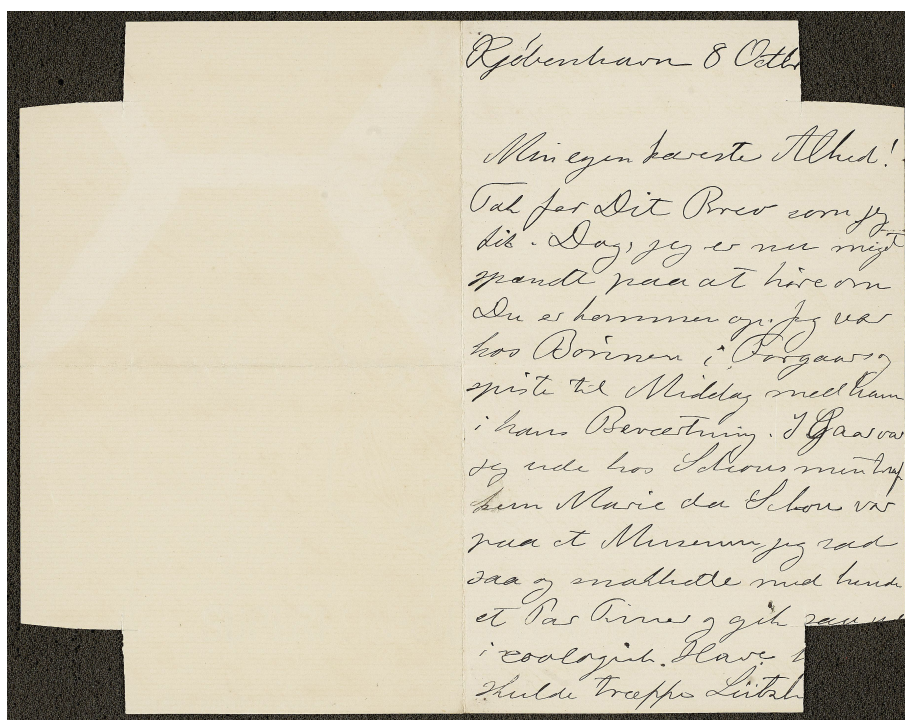 Kjöbenhavn 8 Octbr
Min egen kæreste Alhed!
Tak for Dit Brev som jeg
fik i Dag, jeg er nu meget
spændt paa at höre om
Du er kommen op. Jeg var
hos Börnnen i Forgaars og
spiste til Middag med ham
i hans Beværtning. I Gaar var
jeg ude hos Schous men traf
kun Marie da Schou var
paa et Museum, jeg sad
saa og snakkede med hende
et Par Timer og gik saa
i zoologisk. Have
skulde træffe